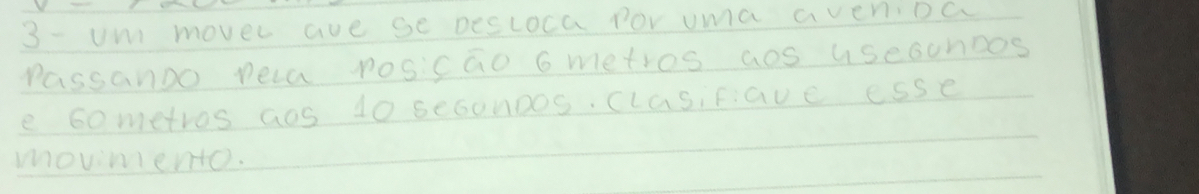 3- um movel que se desloca por uma avenida
passando pela posição 6 metros aos 4 segundos
e 60 metros aos 10 segundos. Clasifique esse
movimento.